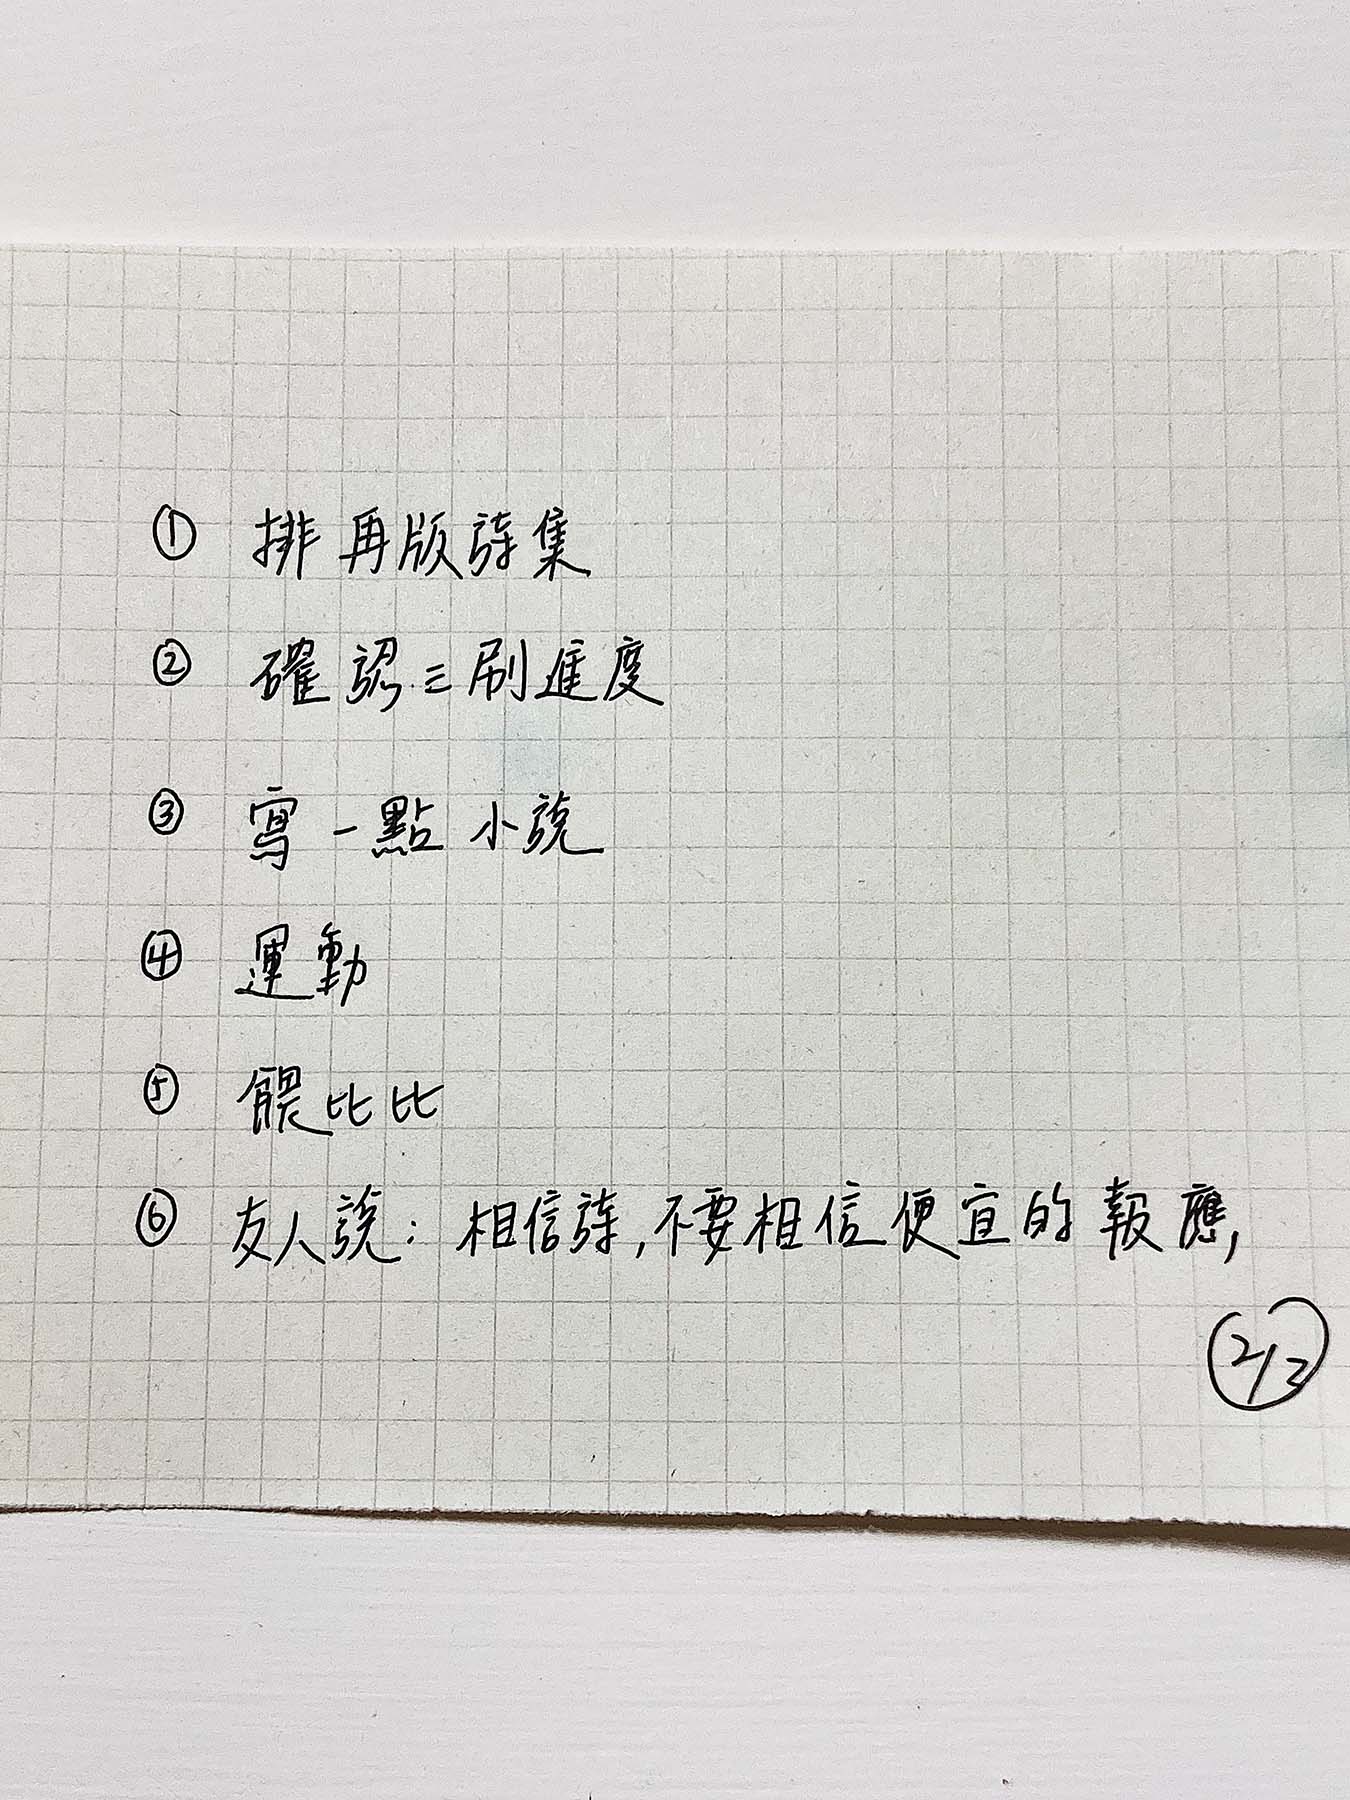 ① 排再版詩集
② 確認三刷進度
③ 寫一點小說
④ 運動
⑤ 餵比比
⑥ 友人說：相信詩，不要相信便宜的報應，
2/2